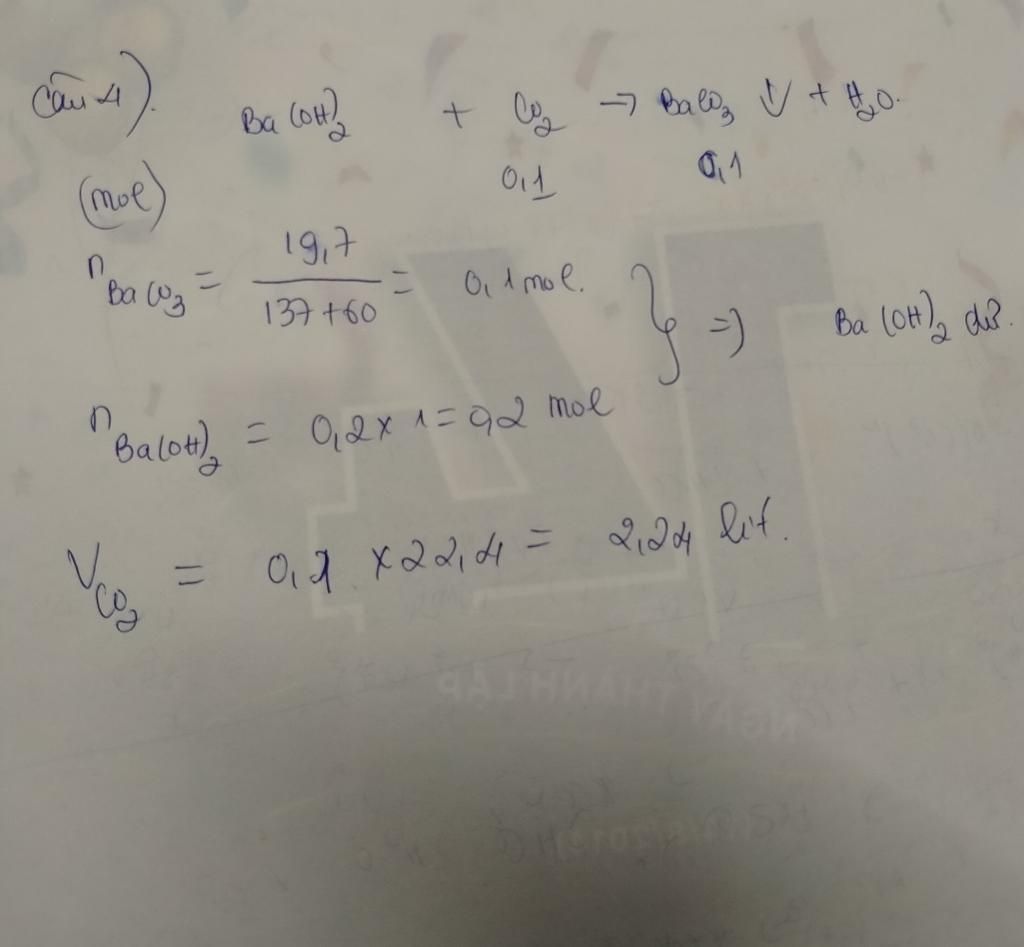 Câu 4).
Ba(OH)₂ + CO₂ → BaCO₃ ↓ + H₂O.
(mol) 0,1 0,1
nBaCO₃ = 19,7 / 137+60 = 0,1 mol.
} => Ba(OH)₂ dư.
nBa(OH)₂ = 0,2 x 1 = 0,2 mol
VCO₂ = 0,1 x 22,4 = 2,24 lit.
NGÀY THÀNH LẬP